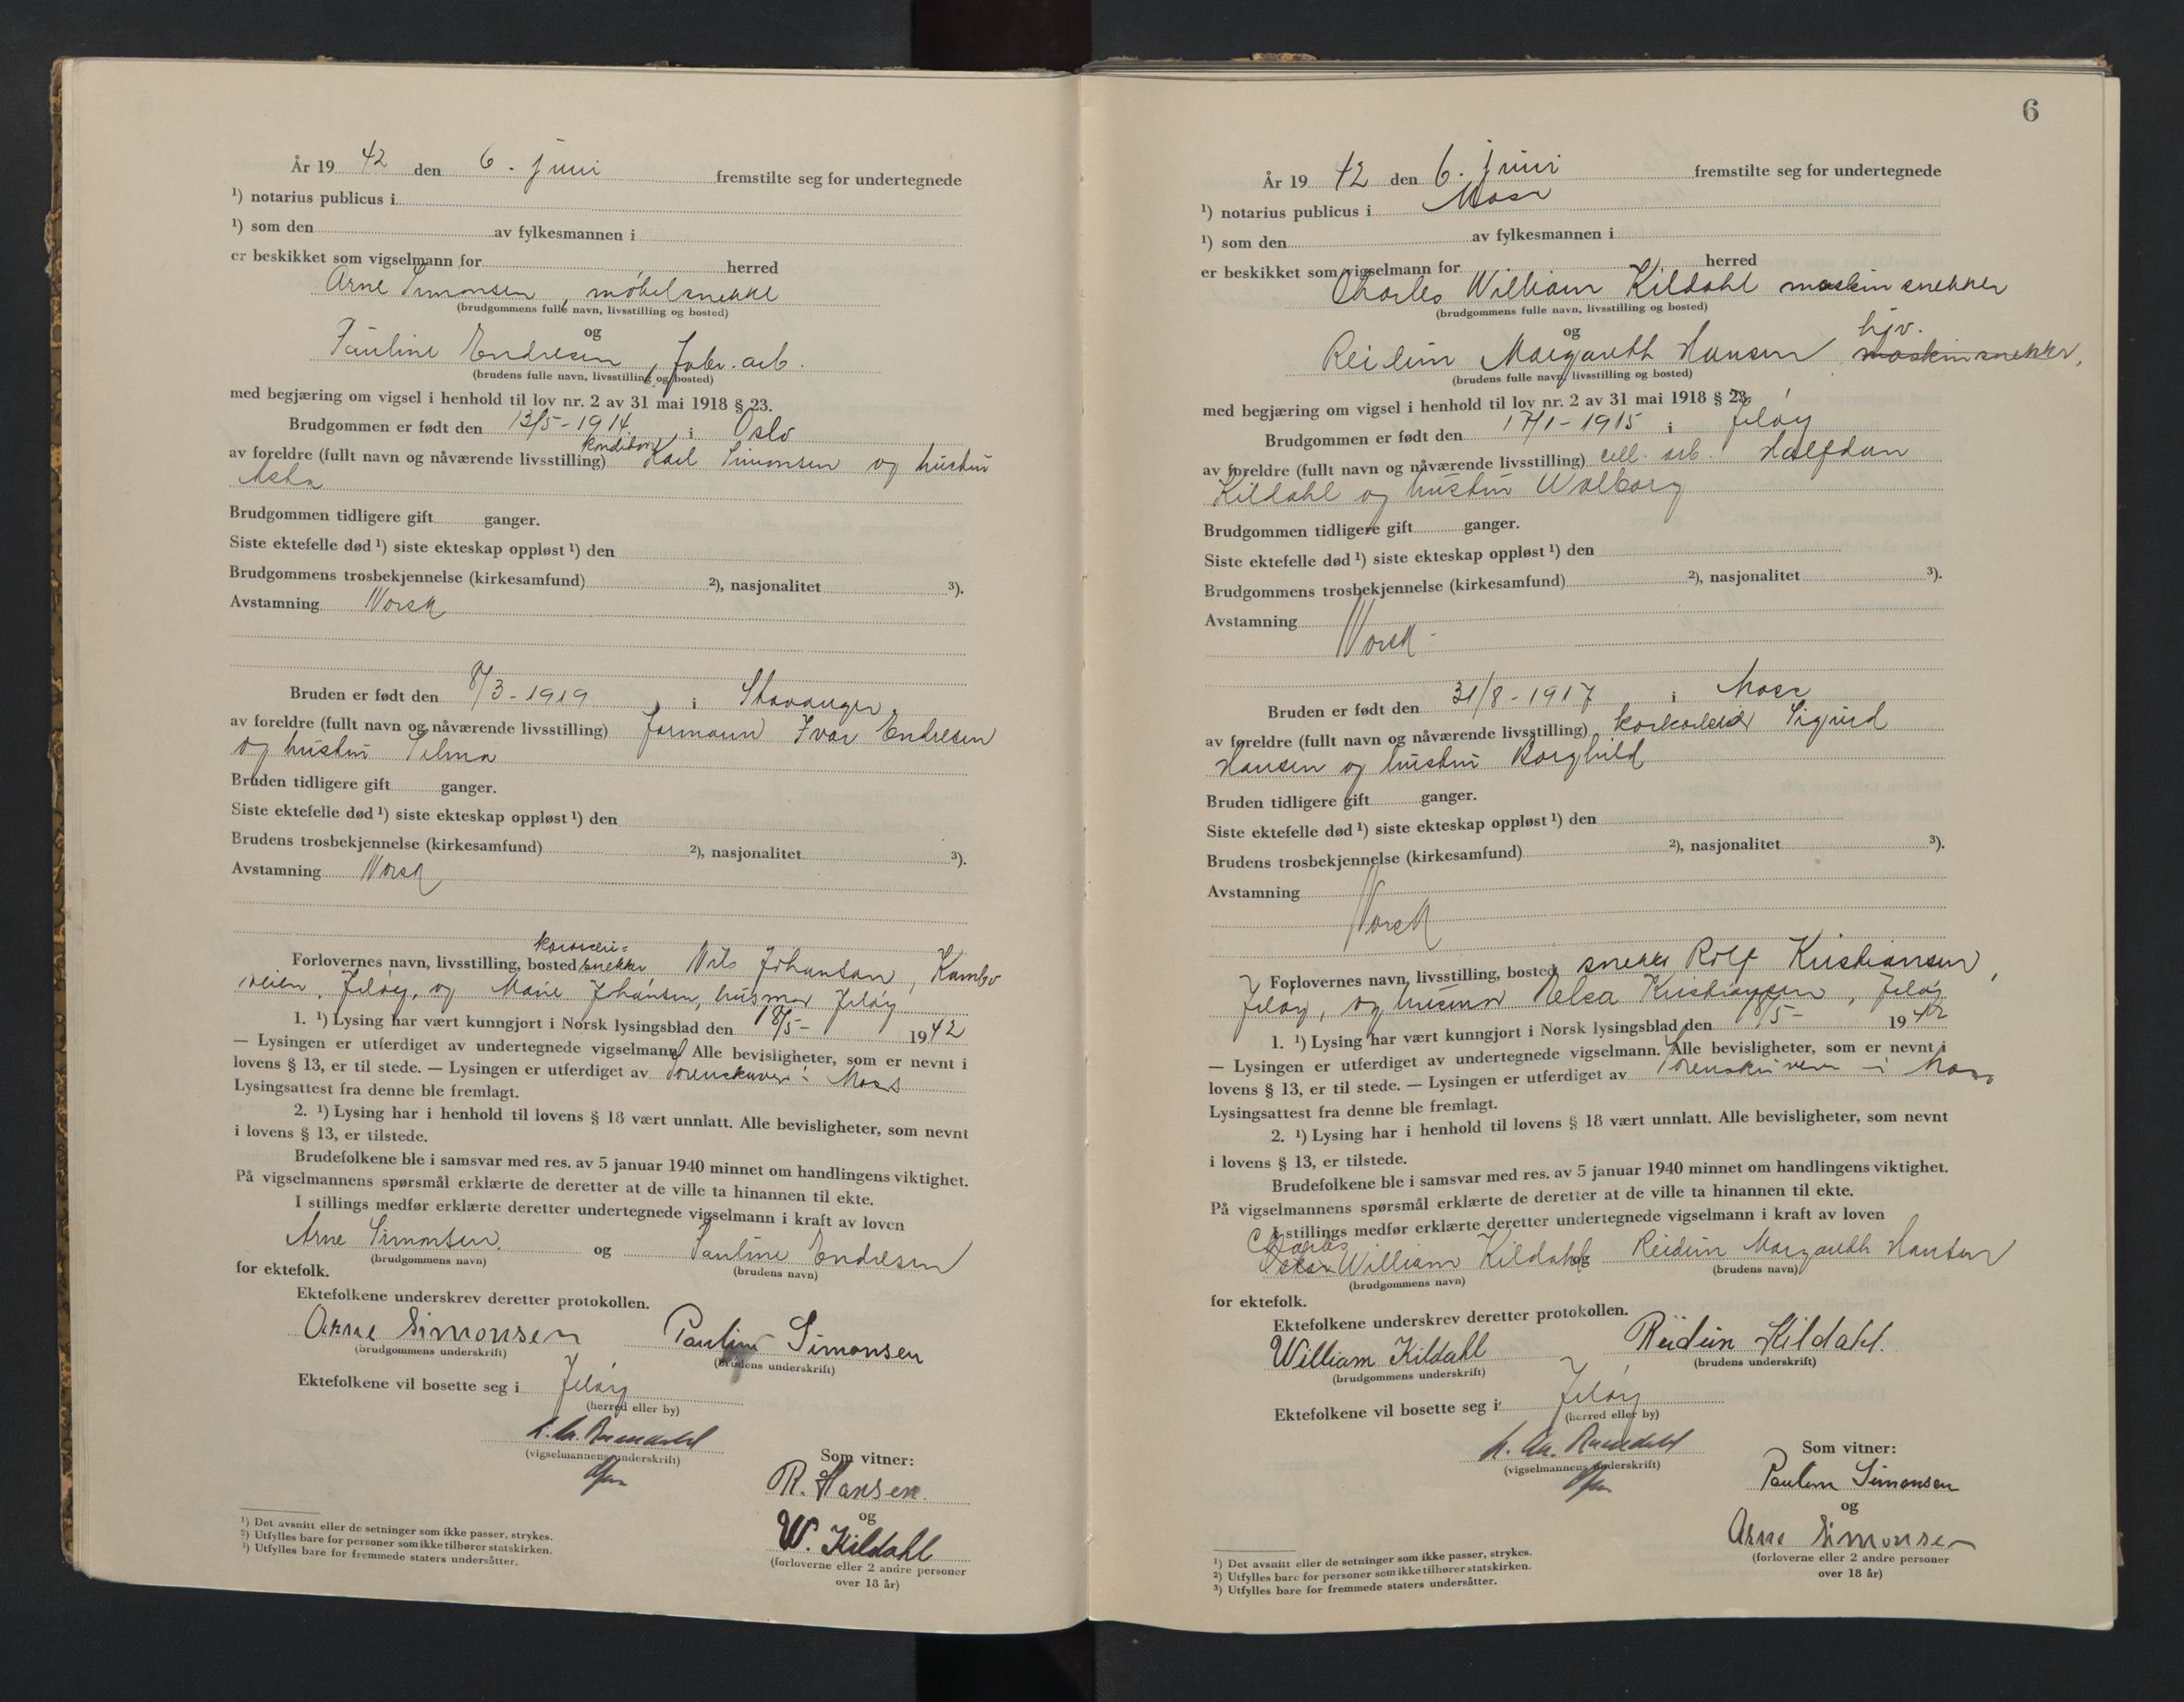 År 19 42 den 6. juni fremstilte seg for undertegnede
¹) notarius publicus i
¹) som den av fylkesmannen i
er beskikket som vigselmann for herred
Arne Simonsen, møbelsnekke
(brudgommens fulle navn, livsstilling og bosted)
og
Pauline Endresen, fabr. arb.
(brudens fulle navn, livsstilling og bosted)
med begjæring om vigsel i henhold til lov nr. 2 av 31 mai 1918 § 23.
Brudgommen er født den 13/5-1914 i Oslo
av foreldre (fullt navn og nåværende livsstilling) konditor Karl Simonsen og hustru
Asta
Brudgommen tidligere gift ganger.
Siste ektefelle død ¹) siste ekteskap oppløst ¹) den
Brudgommens trosbekjennelse (kirkesamfund) ²), nasjonalitet ³).
Avstamning Norsk
Bruden er født den 8/3-1919 i Stavanger
av foreldre (fullt navn og nåværende livsstilling) formann Ivar Endresen
og hustru Selma
Bruden tidligere gift ganger.
Siste ektefelle død ¹) siste ekteskap oppløst ¹) den
Brudens trosbekjennelse (kirkesamfund) ²), nasjonalitet ³).
Avstamning Norsk
Forlovernes navn, livsstilling, bosted karosseri= snekker Nils Johansen, Kambo
veien, Jeløy, og Marie Johansen, husmor Jeløy
1. ¹) Lysing har vært kunngjort i Norsk lysingsblad den 18/5- 1942
— Lysingen er utferdiget av undertegnede vigselmann. Alle bevisligheter, som er nevnt i
lovens § 13, er til stede. — Lysingen er utferdiget av sorenskriveren i Moss
Lysingsattest fra denne ble fremlagt.
2. ¹) Lysing har i henhold til lovens § 18 vært unnlatt. Alle bevisligheter, som nevnt
i lovens § 13, er tilstede.
Brudefolkene ble i samsvar med res. av 5 januar 1940 minnet om handlingens viktighet.
På vigselmannens spørsmål erklærte de deretter at de ville ta hinannen til ekte.
I stillings medfør erklærte deretter undertegnede vigselmann i kraft av loven
Arne Simonsen og Pauline Endresen
(brudgommens navn) (brudens navn)
for ektefolk.
Ektefolkene underskrev deretter protokollen.
Arne Simonsen Pauline Simonsen
(brudgommens underskrift) (brudens underskrift)
Ektefolkene vil bosette seg i Jeløy
(herred eller by)
(vigselmannens underskrift)
Som vitner:
R. Hansen.
og
W. Kildahl
(forloverne eller 2 andre personer
over 18 år)
¹) Det avsnitt eller de setninger som ikke passer, strykes.
²) Utfylles bare for personer som ikke tilhører statskirken.
³) Utfylles bare for fremmede staters undersåtter.
6
År 19 42 den 6. juni fremstilte seg for undertegnede
¹) notarius publicus i Moss
¹) som den av fylkesmannen i
er beskikket som vigselmann for herred
Charles William Kildahl maskinsnekker
(brudgommens fulle navn, livsstilling og bosted)
og hjv.
Reidun Margareth Hansen, maskinsnekker,
(brudens fulle navn, livsstilling og bosted)
med begjæring om vigsel i henhold til lov nr. 2 av 31 mai 1918 § 23.
Brudgommen er født den 17/1-1915 i Jeløy
av foreldre (fullt navn og nåværende livsstilling) cell. arb. Halfdan
Kildahl og hustru Walborg
Brudgommen tidligere gift ganger.
Siste ektefelle død ¹) siste ekteskap oppløst ¹) den
Brudgommens trosbekjennelse (kirkesamfund) ²), nasjonalitet ³).
Avstamning
Norsk -
Bruden er født den 31/8-1917 i Moss
av foreldre (fullt navn og nåværende livsstilling) korkarbeid Sigurd
Hansen og hustru Borghild
Bruden tidligere gift ganger.
Siste ektefelle død ¹) siste ekteskap oppløst ¹) den
Brudens trosbekjennelse (kirkesamfund) ²), nasjonalitet ³).
Avstamning
Norsk
Forlovernes navn, livsstilling, bosted snekker Rolf Kristiansen,
Jeløy, og husmor Elsa Kristiansen, Jeløy
1. ¹) Lysing har vært kunngjort i Norsk lysingsblad den 18/5- 1942
— Lysingen er utferdiget av undertegnede vigselmann. Alle bevisligheter, som er nevnt i
lovens § 13, er til stede. — Lysingen er utferdiget av sorenskriveren i Moss
Lysingsattest fra denne ble fremlagt.
2. ¹) Lysing har i henhold til lovens § 18 vært unnlatt. Alle bevisligheter, som nevnt
i lovens § 13, er tilstede.
Brudefolkene ble i samsvar med res. av 5 januar 1940 minnet om handlingens viktighet.
På vigselmannens spørsmål erklærte de deretter at de ville ta hinannen til ekte.
I stillings medfør erklærte deretter undertegnede vigselmann i kraft av loven
Charles
William Kildahl og Reidun Margareth Hansen
(brudgommens navn) (brudens navn)
for ektefolk.
Ektefolkene underskrev deretter protokollen.
William Kildahl Reidun Kildahl.
(brudgommens underskrift) (brudens underskrift)
Ektefolkene vil bosette seg i Jeløy
(herred eller by)
(vigselmannens underskrift)
Som vitner:
Pauline Simonsen
og
Arne Simonsen
(forloverne eller 2 andre personer
over 18 år)
¹) Det avsnitt eller de setninger som ikke passer, strykes.
²) Utfylles bare for personer som ikke tilhører statskirken.
³) Utfylles bare for fremmede staters undersåtter.